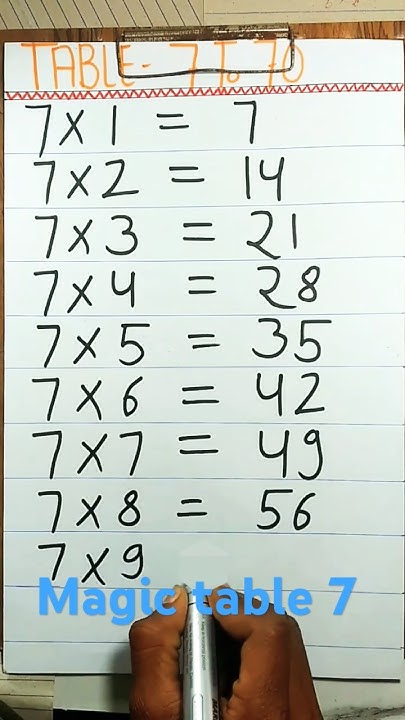 TABLE- 7 To 70
7 x 1 = 7
7 x 2 = 14
7 x 3 = 21
7 x 4 = 28
7 x 5 = 35
7 x 6 = 42
7 x 7 = 49
7 x 8 = 56
7 x 9
Magic table 7